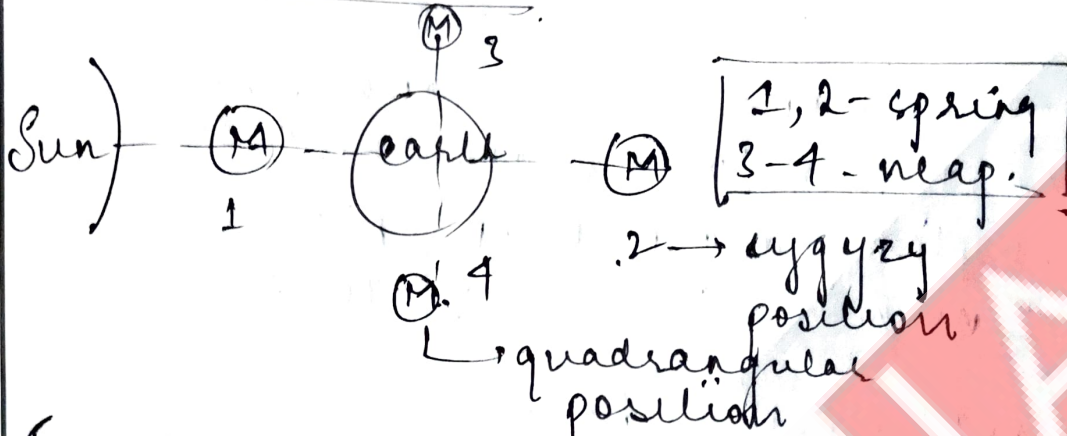 M 3
Sun M earth M
1
1, 2 - spring
3-4 - neap.
.2 → sygyzy
position
M. 4
quadrangular
position
IA